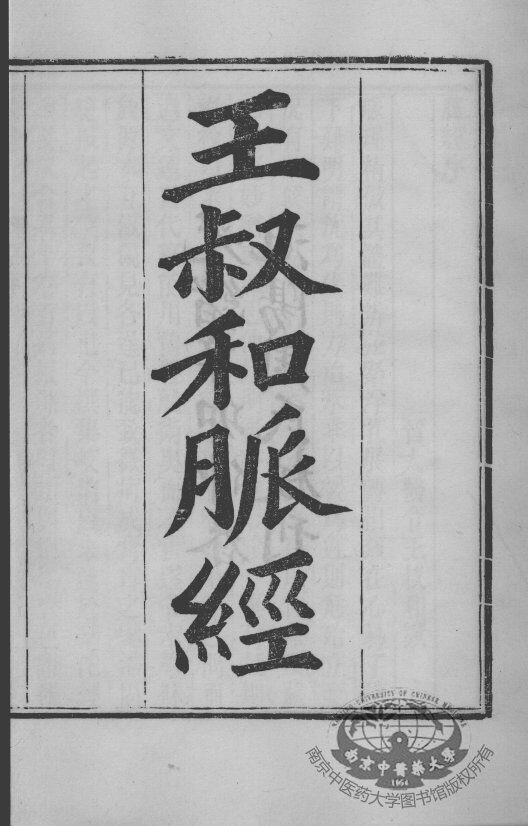 王叔和脈經
NANJING UNIVERSITY OF CHINESE MEDICINE
南京中醫藥大學
1954
南京中医药大学图书馆版权所有